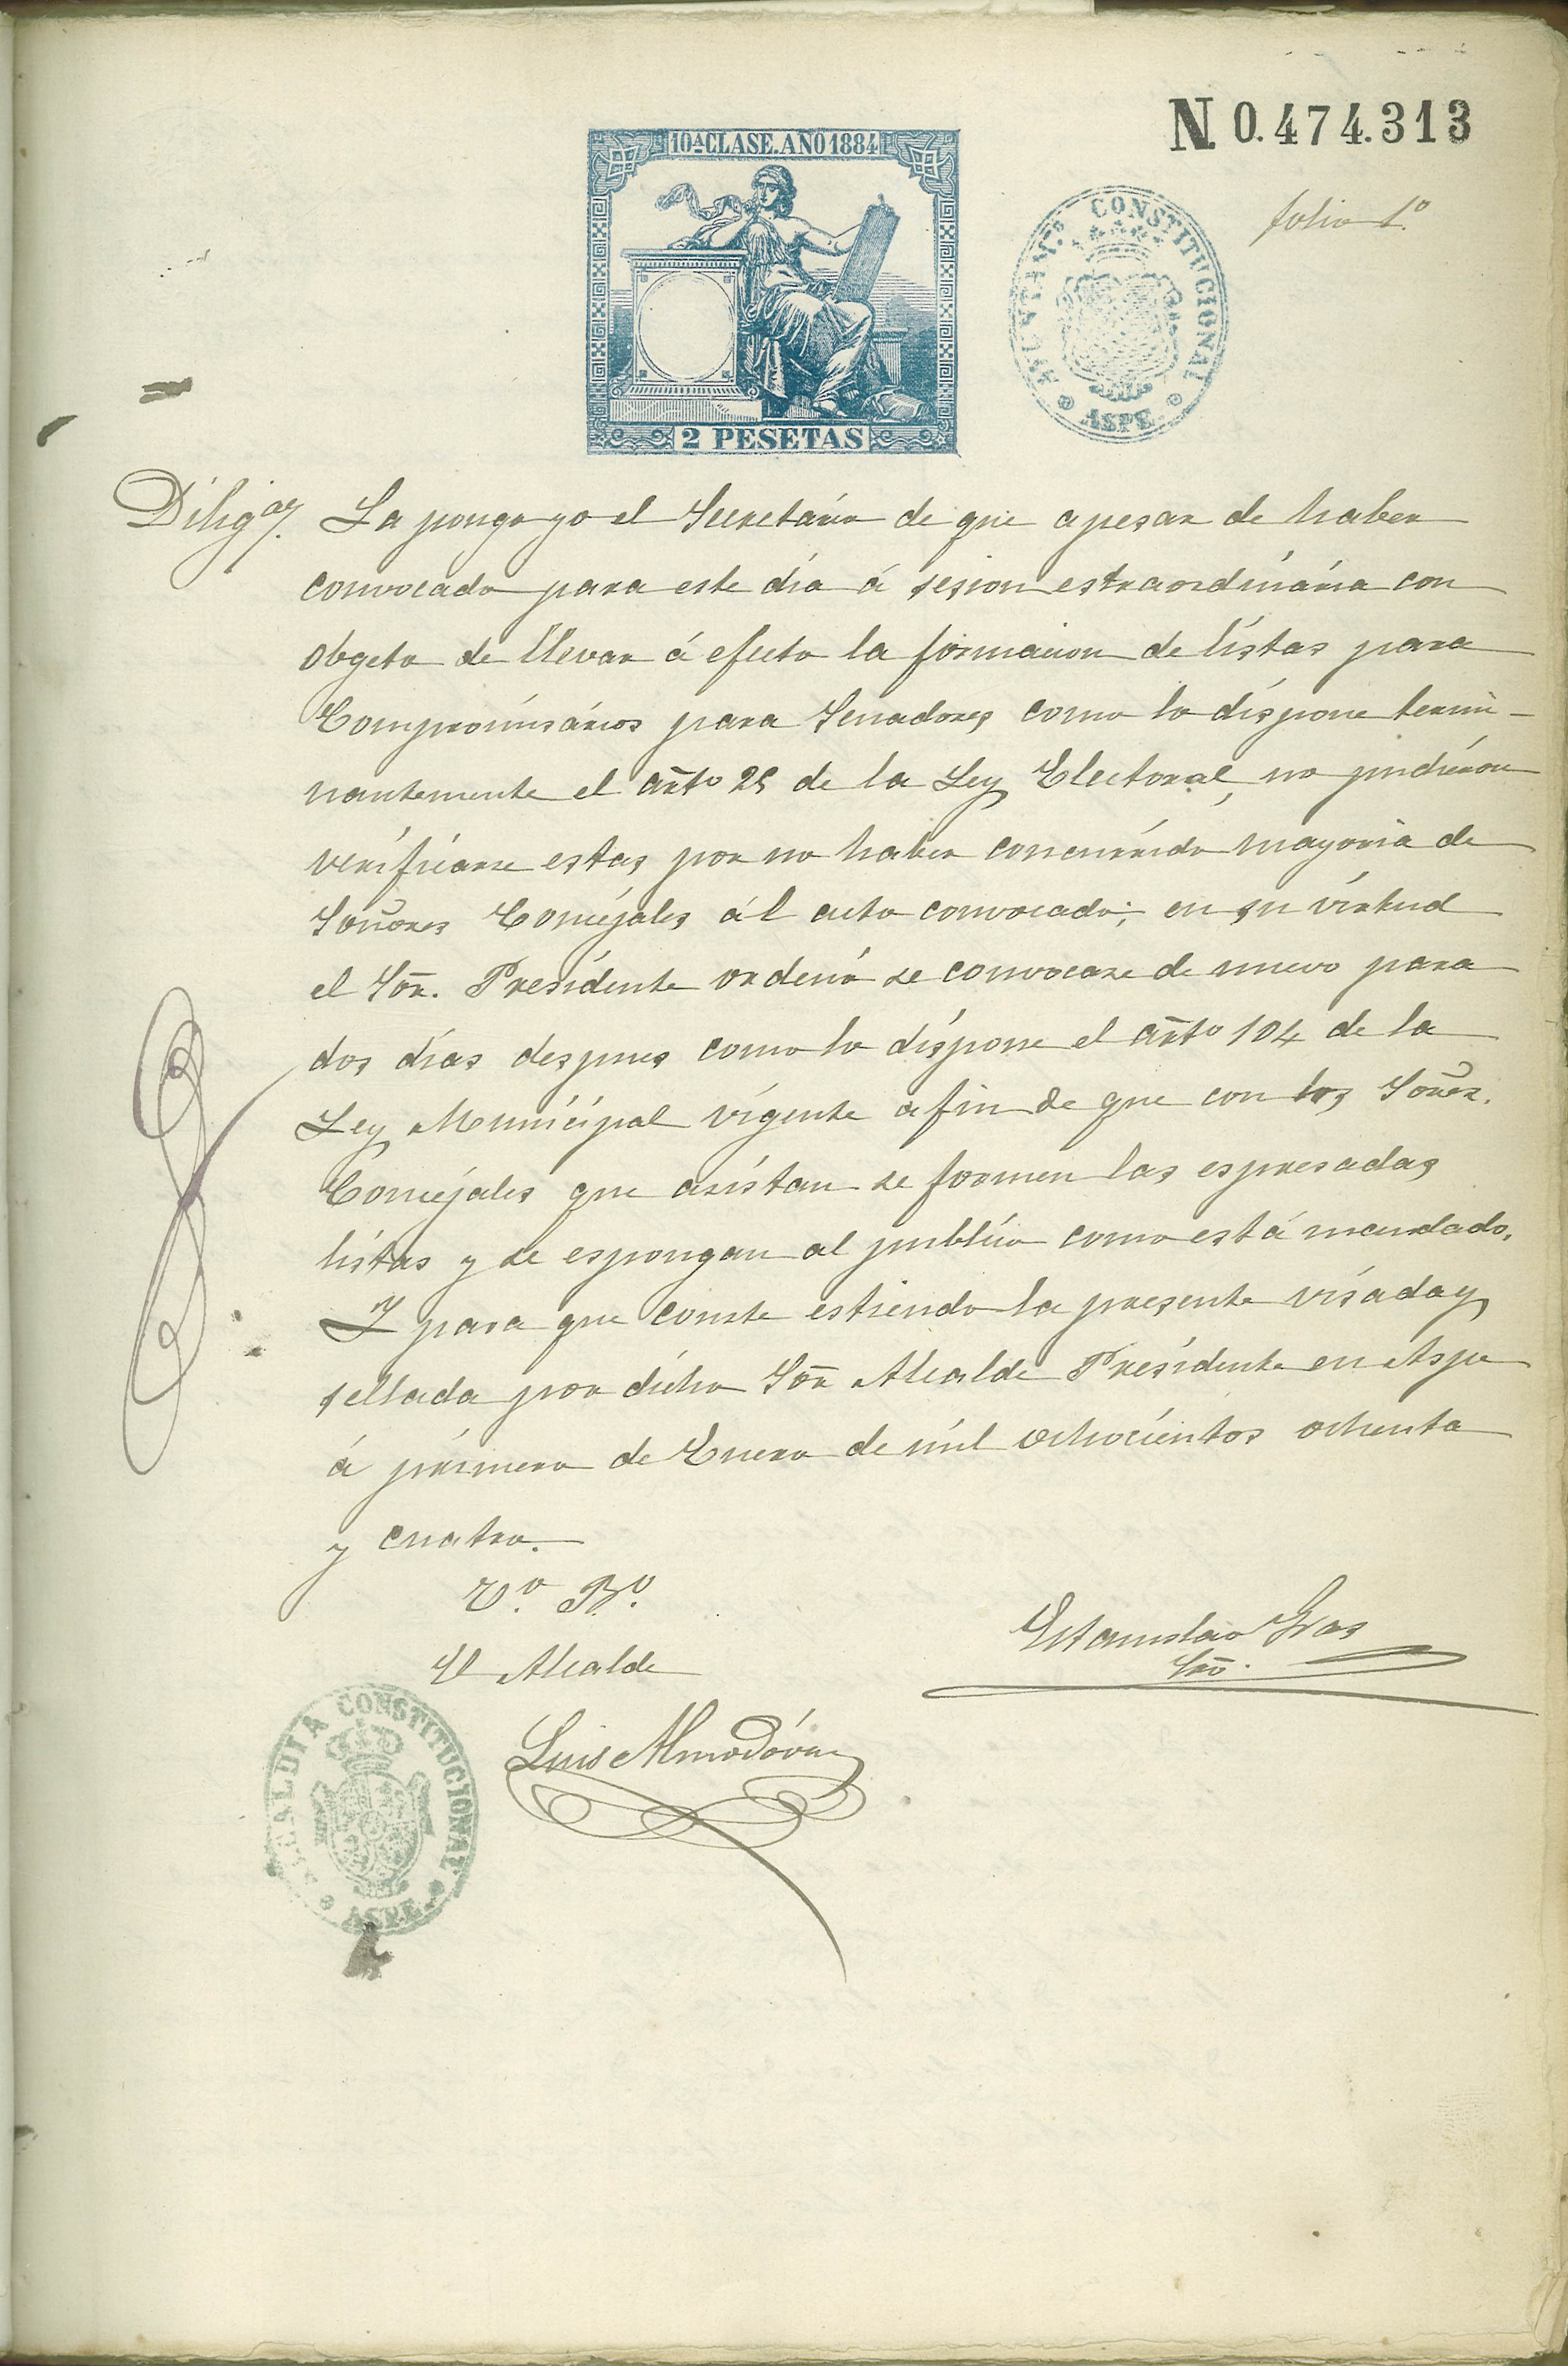 N. 0.474.313
10ª CLASE. AÑO 1884
2 PESETAS
AYUNTAM.TO CONSTITUCIONAL
ASPE.
folio 1º
Diligª. La pongo yo el Secretário de que apesar de haber
convocado para este día á sesion estraordinária con
obgeto de llevar á efecto la formacion de listas para
Compromisários para Senadores como lo dispone termi-
nantemente el artº 25 de la Ley Electoral, no pudieron
verificarse estas por no haber concurrido mayoria de
Señores Concejales ál acto convocado; en su virtud
el Sor. Presidente ordenó se convocase de nuevo para
dos días despues como lo dispone el artº 104 de la
Ley Municipal vigente afin de que con los Señes.
Concejales que asistan se formen las espresadas
listas y se espongan al público como está mandado.
Y para que conste estiendo la presente visada y
sellada por dicho Sor Alcalde Presidente en Aspe
á primero de Enero de mil ochocientos ochenta
y cuatro.
Vº. Bº.
El Alcalde
Estanislao Gras
Srio.
Luis Almodóvar
ALCALDIA CONSTITUCIONAL
ASPE